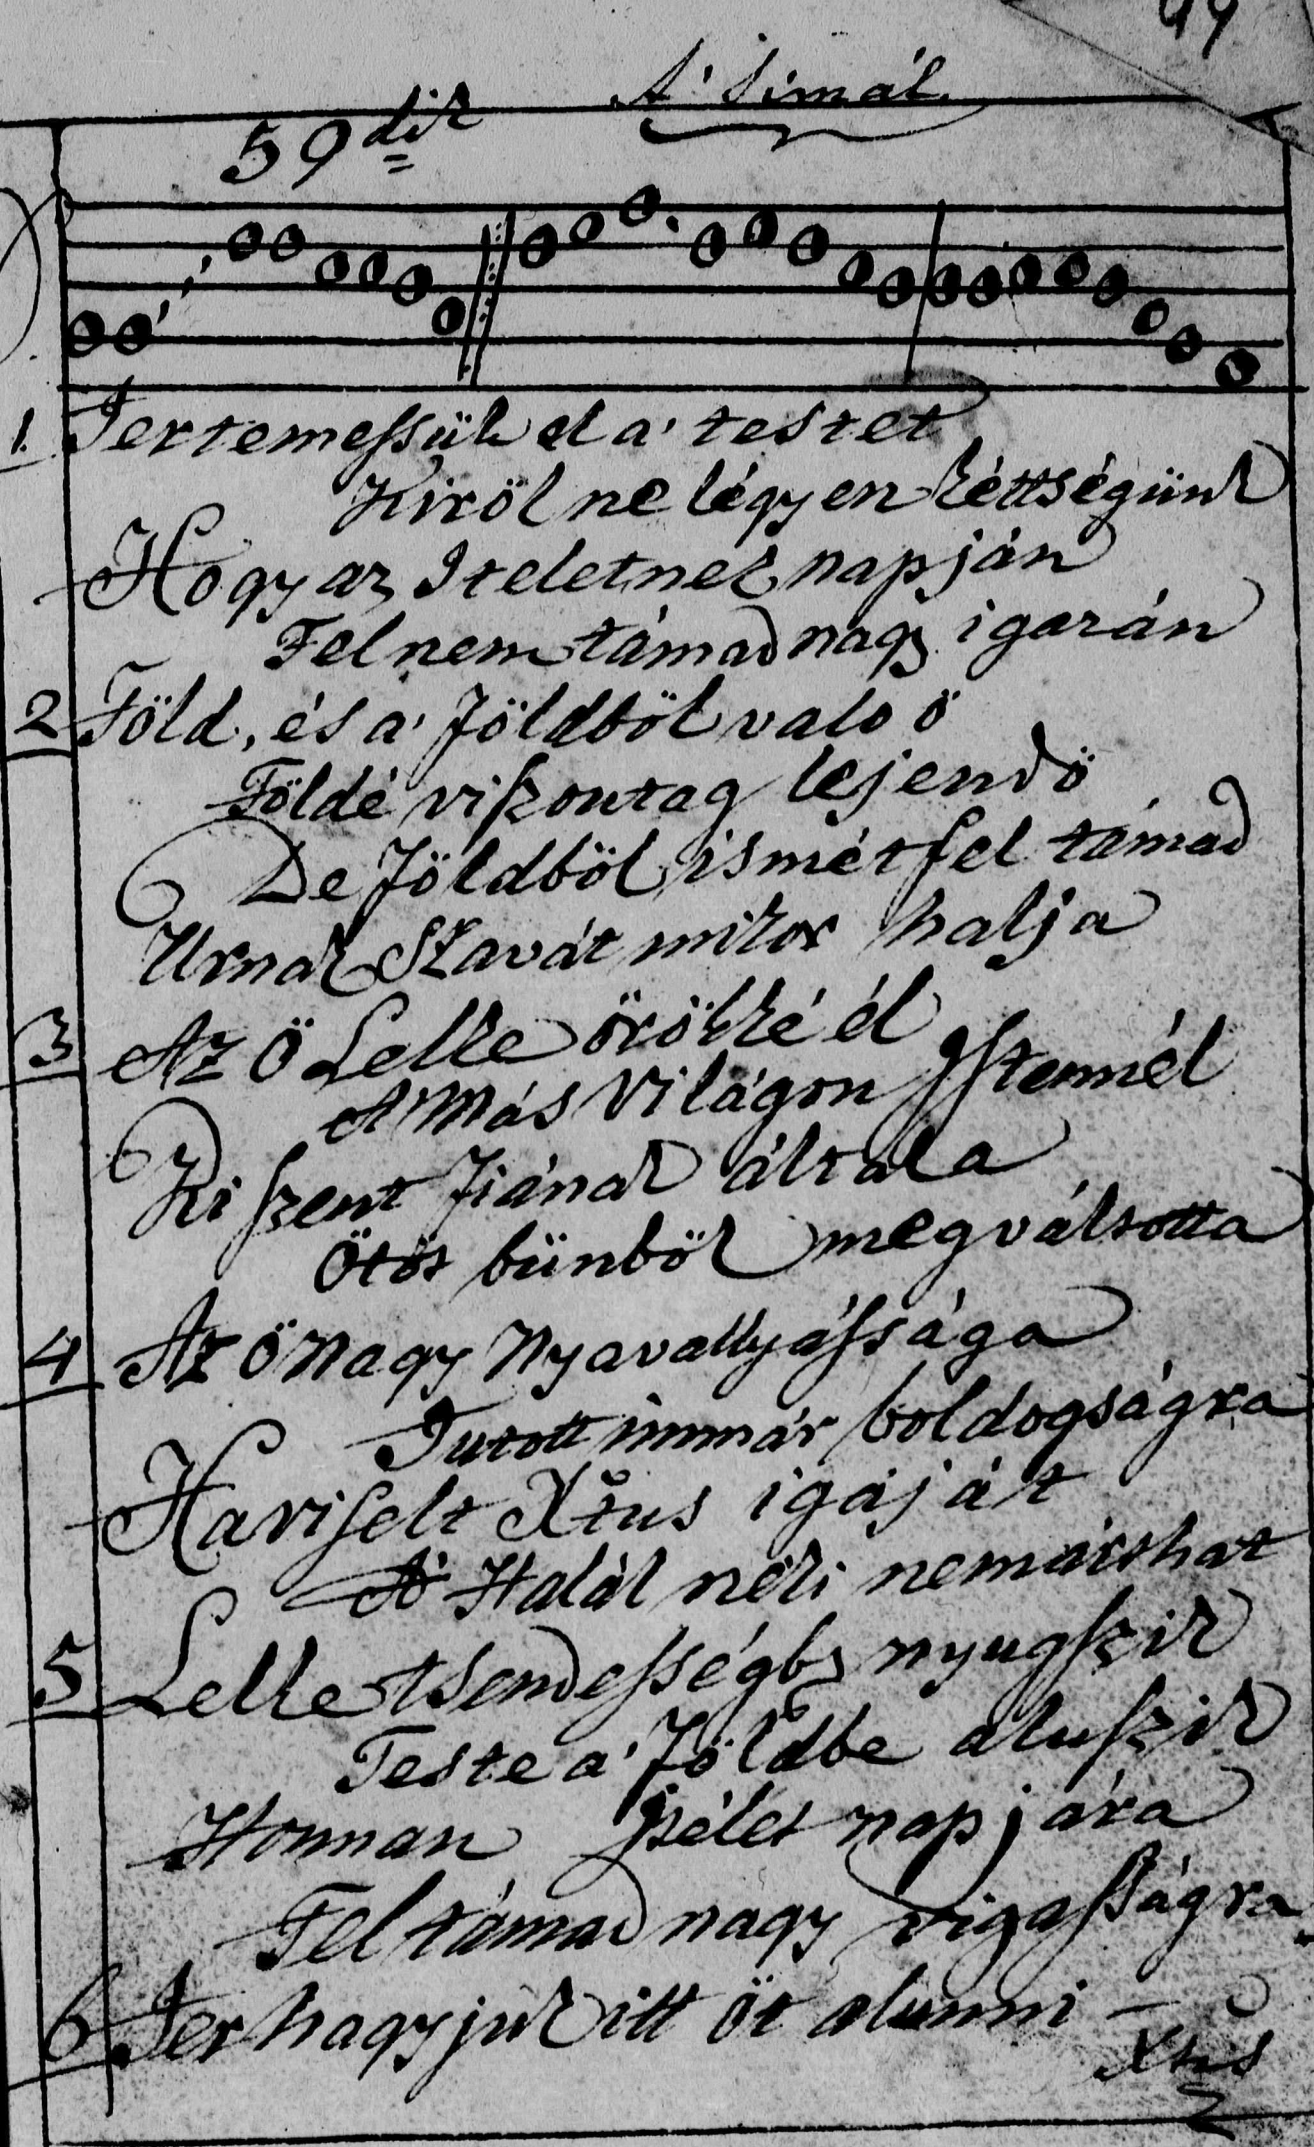 99
A' Sirnál
59dik
1. Jer temessük el a' testet
Kiröl ne légyen kéttségünk
Hogy az Iteletnek napján
Fel nem támad nagy igazán
2 Föld, és a' földböl valo ö
Földé viszontag lejendö
De földböl ismét fel támad
Urnak Szavát mikor halja
3 Az Ö Lelke örökké él
A' Más Világon Istennél
Ki szent fiának általa
Ötöt bünböl megváltotta
4 Az Ö nagy Nyavallyássága
Jutott immár boldogságra
Ha viselt Xtus igáját
A' Halál néki nem árthat
5 Lelke tsendességbe nyugszik
Teste a' földbe aluszik
Honnan itélet napjára
Fel támad nagy vigasságra.
6 Jer hagyjuk itt öt alunni –
Xtus